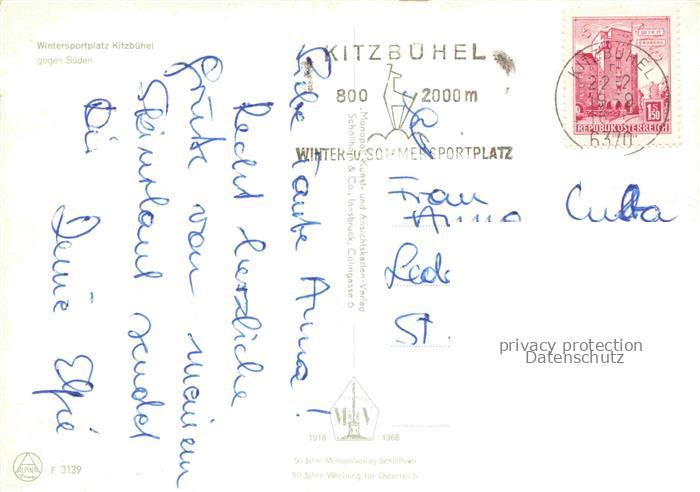 Wintersportplatz Kitzbühel
gegen Süden
Liebe Tante Anna!
Recht herzliche
Grüße von meinem
Skiurlaub sendet
Dir
Deine Elfie
KITZBÜHEL
800 2000 m
WINTER- U. SOMMERSPORTPLATZ
KITZBÜHEL
6370
1.50
REPUBLIK ÖSTERREICH
Frau
Anna
St.
privacy protection
Datenschutz
Monopol Kunst- und Ansichtskarten-Verlag
& Co., Innsbruck, Colingasse 6
1918 1968
50 Jahre Monopolverlag Schöllhorn
50 Jahre Werbung für Österreich
ALPINA
F 3139